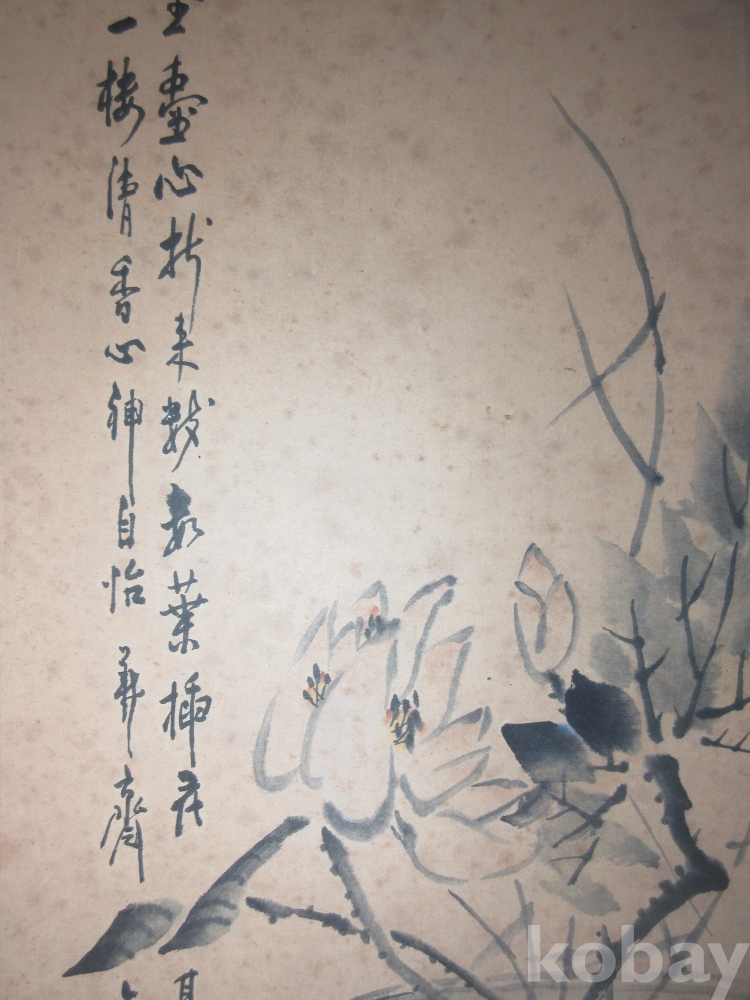 壺心折来數葉插
一樓清香心神自怡 彝齋
kobay